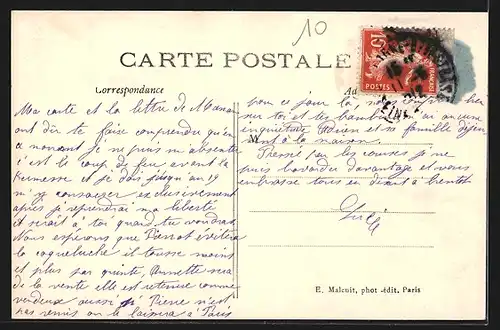 10
CARTE POSTALE
Correspondance
Ad
15
POSTES
Ma carte et la lettre de Maman
ont dû te faire comprendre qu'en
ce moment je ne puis m'absenter
c'est le coup de feu avant la
kermesse et je dois jusqu'au 19
m'y consacrer exclusivement
après je reprendrai ma liberté
et serait à toi quand tu voudras
Nous espérons que Pierrot évitera
la coqueluche il tousse moins
et plus par quinte, Annette sera
de la vente elle est retenue comme
vendeuse aussi si Pierre n'est
pas remis on le laissera à Paris
pour ce jour là, nous comptons bien
sur toi et tes bambins, j'ai aucune
inquiétude Adrien et sa famille déjeu
nent à la maison.
Pressé par les courses je ne
puis bavarder davantage et vous
embrasse tous en disant à bientôt
E. Malcuit, phot.-édit. Paris